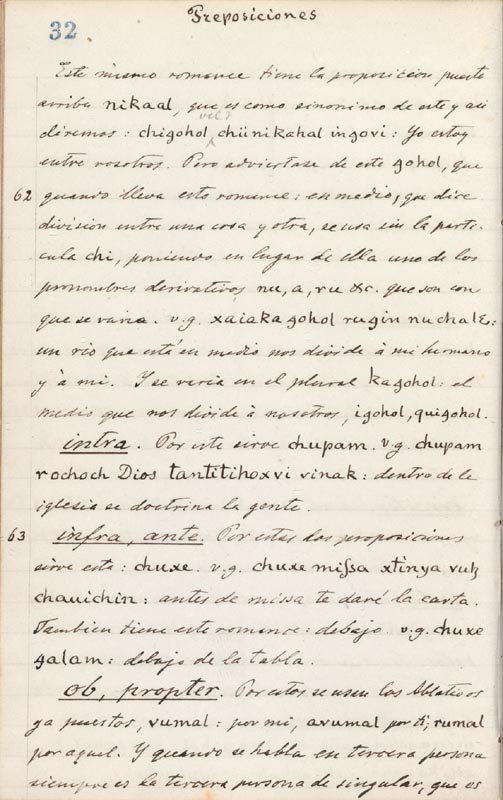 Preposiciones
32
Este mismo romance tiene la proposicion puesta
arriba nikaal, que es como sinonimo de este y asi
diremos: chigohol, vel? chiinikahal ingovi: Yo estoy
entre vosotros. Pero adviertase de este gohol, que
62 quando lleva este romance: en medio, que dice
division entre una cosa y otra, se usa sin la parti-
cula chi, poniendo en lugar de ella uno de los
pronombres derivativos nu, a, ru &c. que son con
que se varia. v.g. xaiaka gohol rugin nu chalꜫ:
un rio que está en medio nos divide à mi hermano
y à mi. Y se varia en el plural kagohol: el
medio que nos divide à nosotros, igohol, quigohol.
intra. Por este sirve chupam. v.g. chupam
rochoch Dios tantitihoxvi vinak: dentro de le
iglesia se doctrina la gente.
63 infra, ante. Por estas dos proposiciones
sirve esta: chuxe. v.g. chuxe missa xtinya vuh
chauichin: antes de missa te daré la carta.
Tambien tiene este romance: debajo. v.g. chuxe
galam: debajo de la tabla.
ob, propter. Por estos se usen los Ablativos
ya puestos, vumal: por mi, avumal por ti; rumal
por aquel. Y quando se habla en tercera persona
siempre es la tercera persona de singular, que es